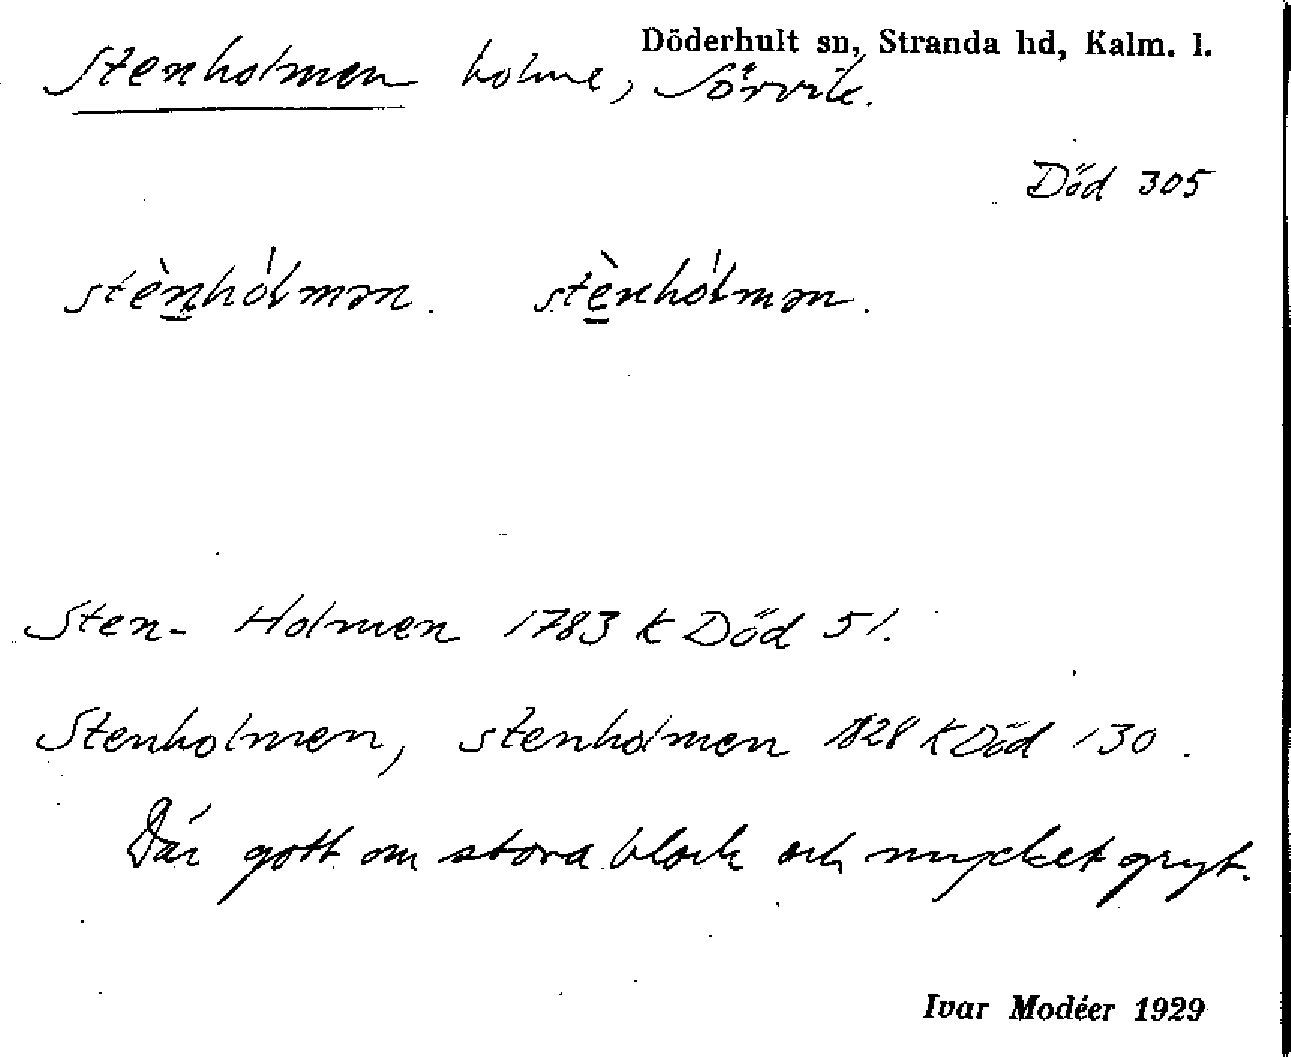 Döderhult sn, Stranda hd, Kalm. l.
Stenholmen holme, Sörvik.
Död 305
stènhólmən. stènhólmən.
Sten- Holmen 1783 k Död 51.
Stenholmen, stenholmen 1828 k Död 130.
Där gott om stora block och mycket gryt.
Ivar Modéer 1929